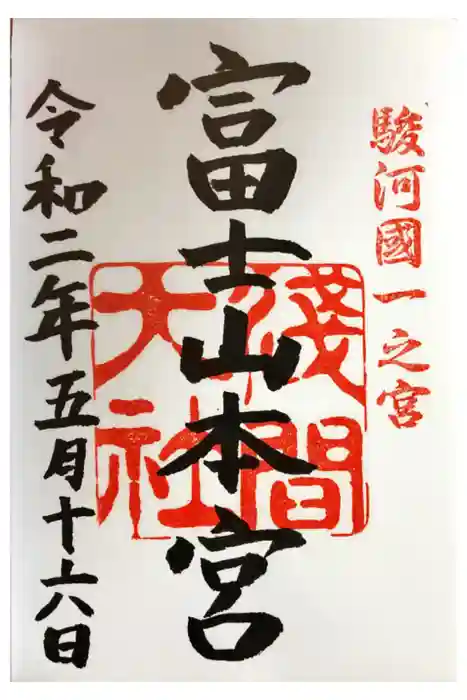 駿河國一之宮
富士山本宮
淺間大社
令和二年五月十六日